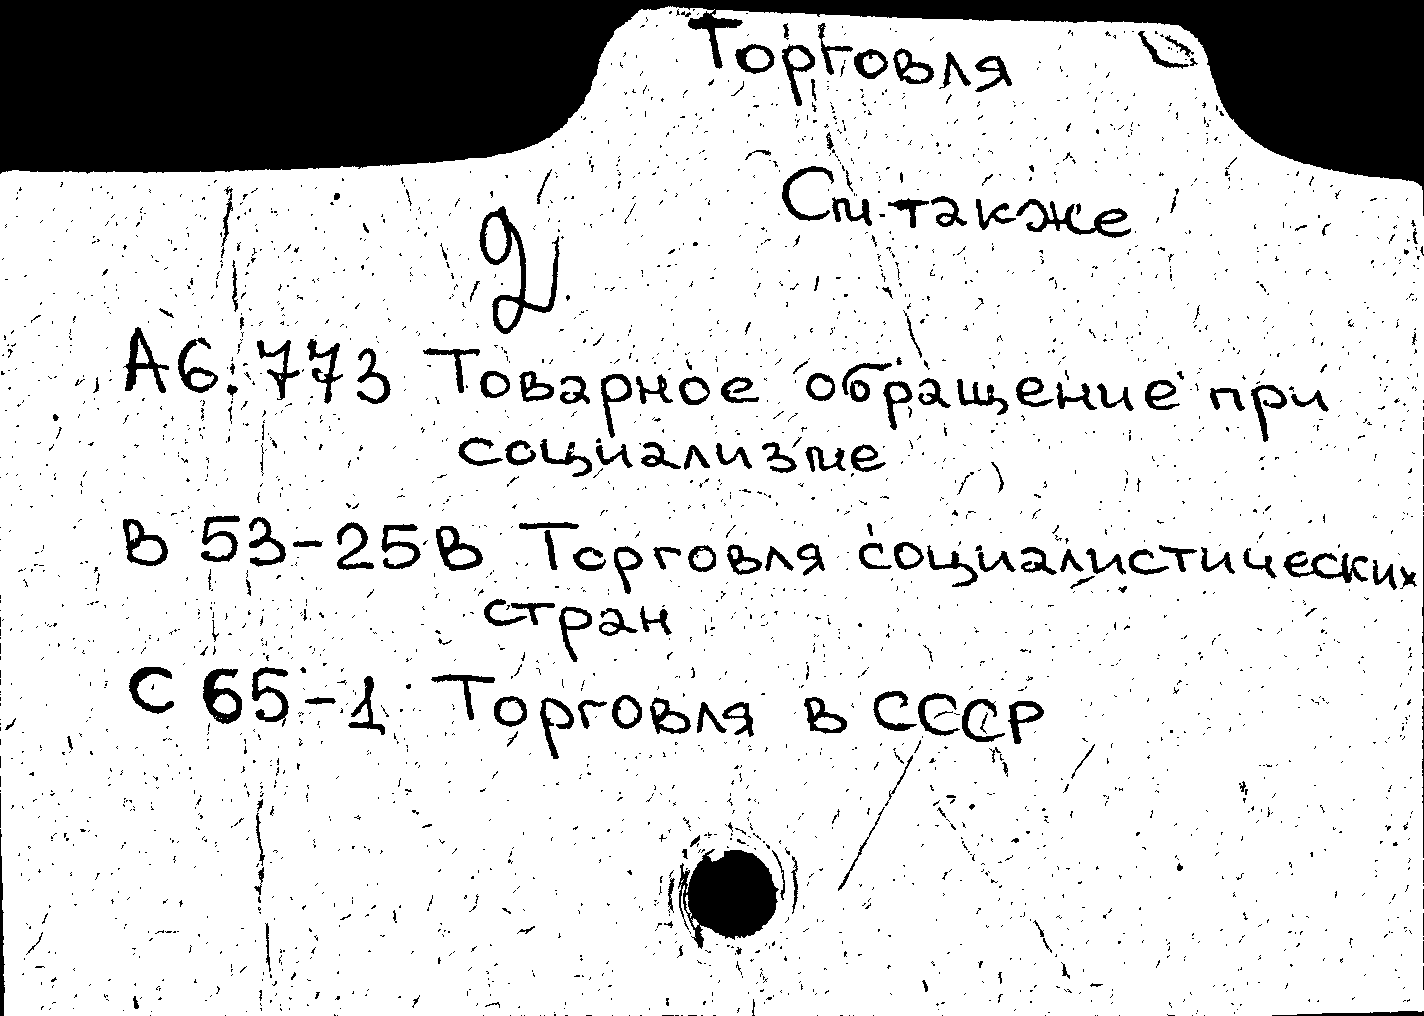 Торговля
См. также
2
А6.773 Товарное обращение при
социализме
В 53-25В Торговля социалистических
стран
С 65-1 Торговля в СССР